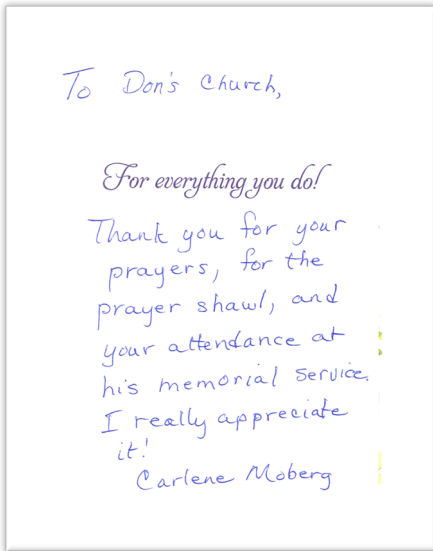 To Don's Church,
For everything you do!
Thank you for your
prayers, for the
prayer shawl, and
your attendance at
his memorial service.
I really appreciate
it!
Carlene Moberg